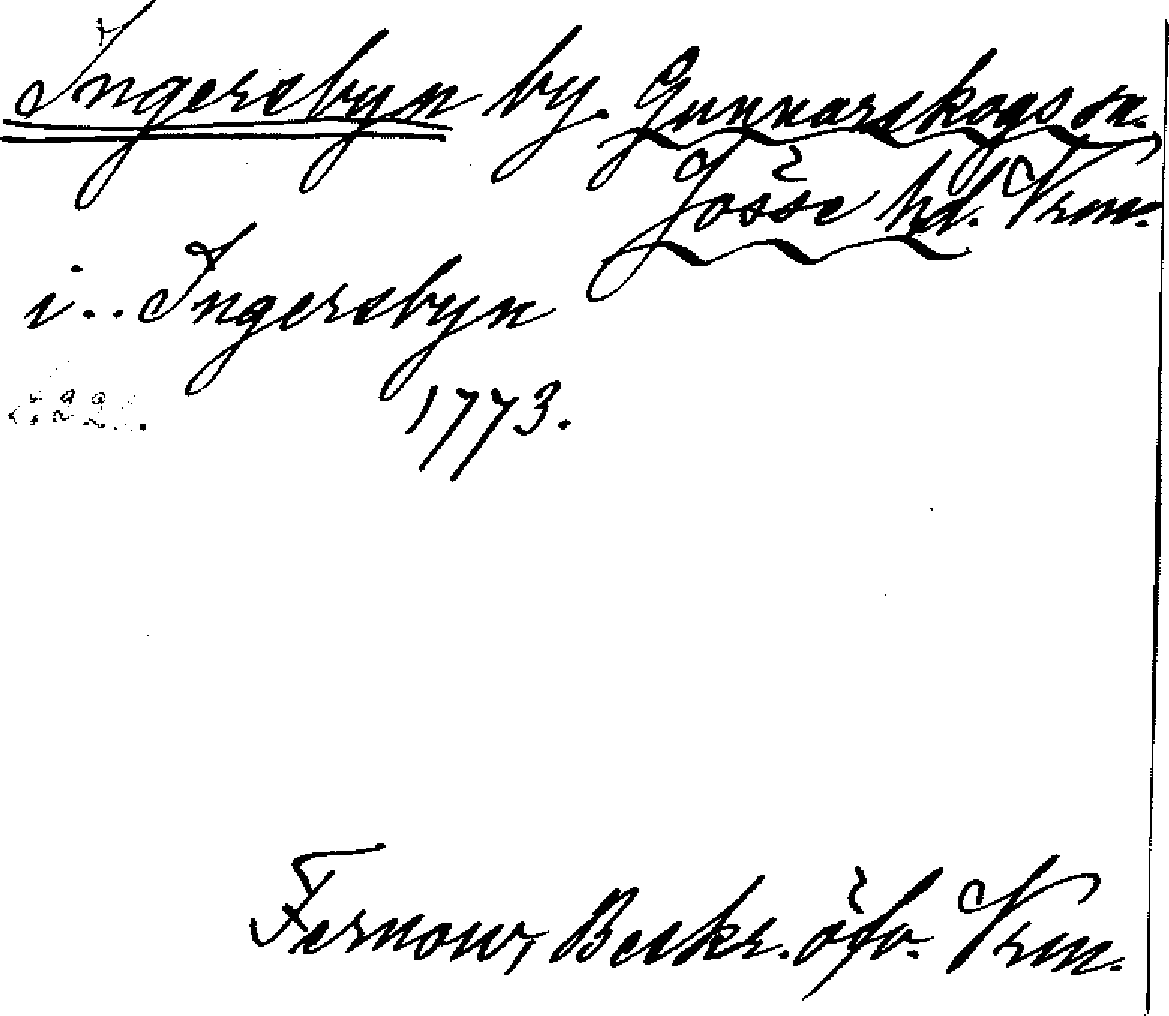 Ingersbyn by. Gunnarskogs sn.
Jösse hd. Vrm.
i.. Ingersbyn
1773.
Fernow, Beskr. öfv. Vrm.